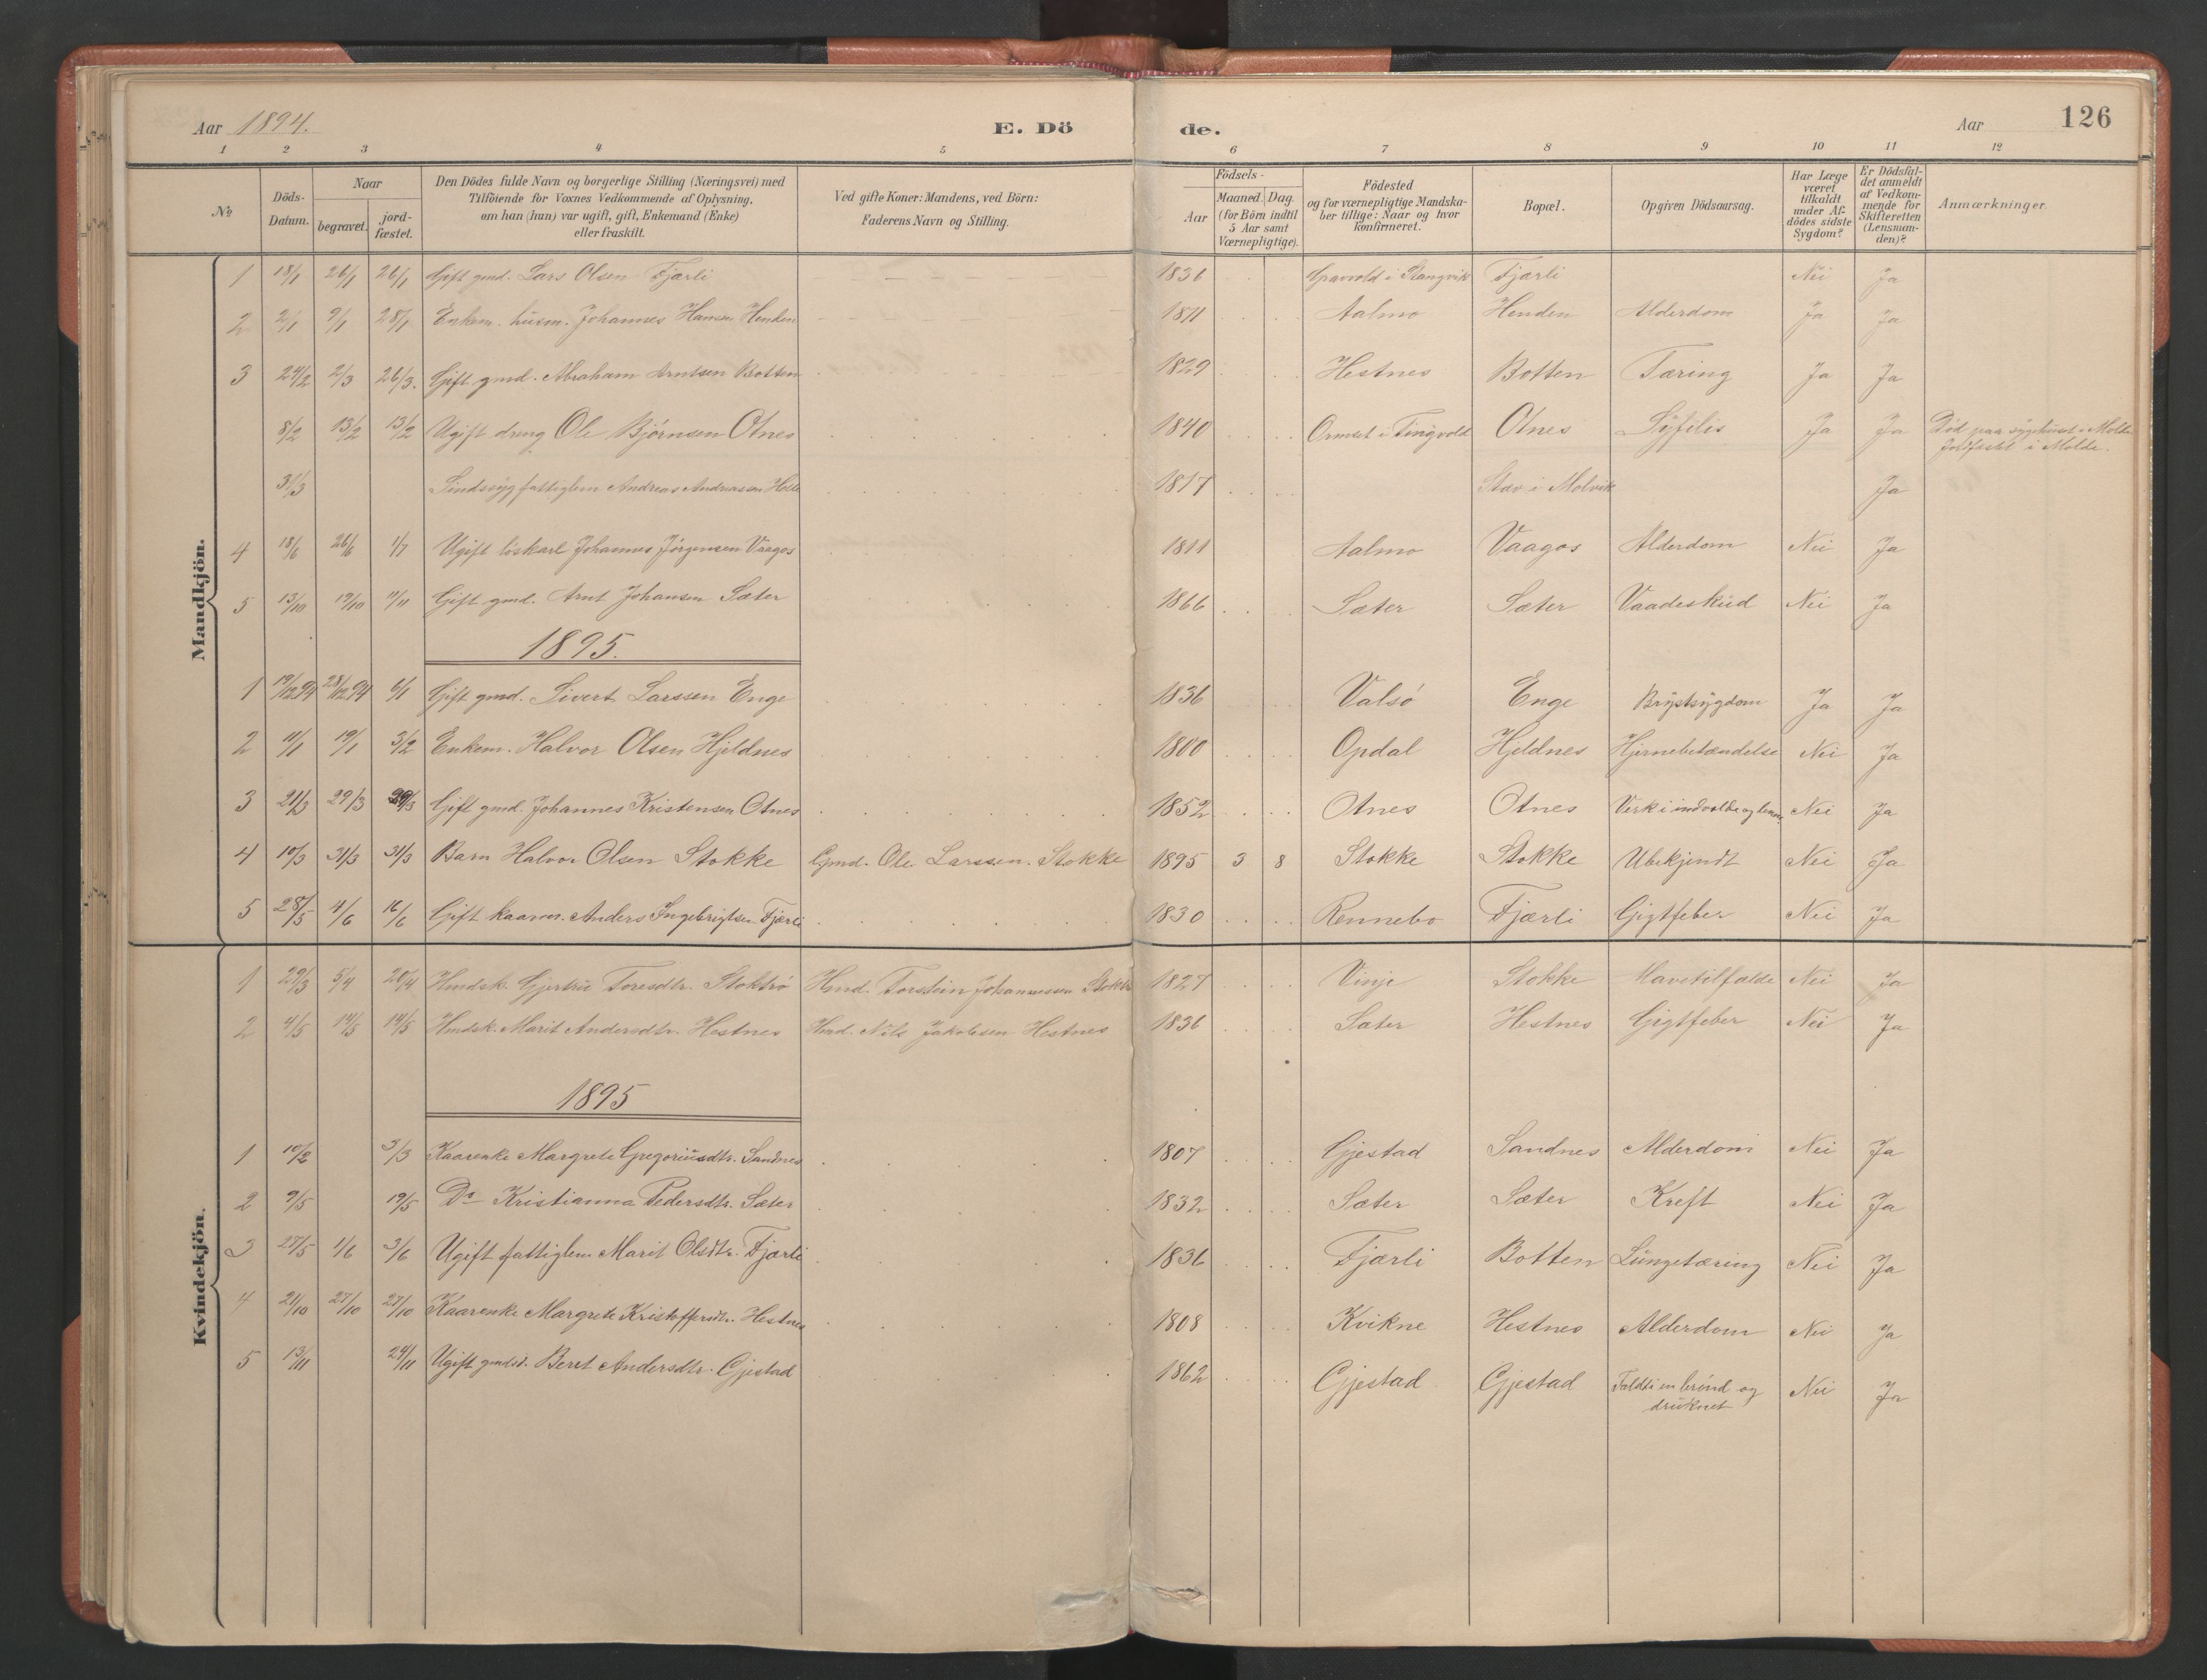 Aar 1894. E. Dö de. Aar 126
1 2 3 4 5 6 7 8 9 10 11 12
No
Döds-Datum.
Naar
begravet.
jord-fæstet.
Den Dödes fulde Navn og borgerlige Stilling (Næringsvei) med
Tilföiende for Voxnes Vedkommende af Oplysning,
om han (hun) var ugift, gift, Enkemand (Enke)
eller fraskilt.
Ved gifte Koner: Mandens, ved Börn:
Faderens Navn og Stilling.
Födsels-
Aar
Maaned. Dag.
(for Börn indtil
5 Aar samt
Værnepligtige).
Födested
og for værnepligtige Mandska-
ber tillige: Naar og hvor
konfirmeret.
Bopæl.
Opgiven Dödsaarsag.
Har Læge
været
tilkaldt
under Af-
dödes sidste
Sygdom?
Er Dödsfal-
det anmeldt
af Vedkom-
mende for
Skifteretten
(Lensman-
den)?
Anmærkninger.
Mandkjön.
1 18/1 26/1 26/1 Gift gmd. Lars Olsen Fjærli 1836 i Stangvik Fjærli Nei Ja
2 2/1 9/1 28/1 Enkem. husm. Johannes Hansen Henden 1811 Aalmo Henden Alderdom Ja Ja
3 24/2 2/3 26/3. Gift gmd. Abraham Arntsen Botten 1829 Hestnes Botten Tæring Ja Ja
8/2 13/2 13/2 Ugift dreng Ole Bjørnsen Otnes 1840 Ormset i Tingvold Otnes Syfilis Ja Ja Död paa sygehuset i Molde
Jordfæstet i Molde.
31/3 Sindssyg fattiglem Andreas Andreassen 1817 Stav i Malvik Ja
4 18/6 26/6 1/7 Ugift löskarl Johannes Jörgensen Vaagos 1811 Aalmo Vaagos Alderdom Nei Ja
5 13/10 19/10 11/11 Gift gmd. Arnt Johansen Sæter 1866 Sæter Sæter Vaadeskud Nei Ja
1895.
1 19/12 94 28/12 94 6/1 Gift gmd. Sivert Larssen Enge 1836 Valsö Enge Brystsygdom Ja Ja
2 11/1 19/1 3/2 Enkem. Halvor Olsen Hjeldnes 1800 Opdal Hjeldnes Hjernebetændelse Nei Ja
3 21/3 29/3 29/3 Gift gmd. Johannes Kristensen Otnes 1852 Otnes Otnes Verk i indvolde og Nei Ja
4 10/3 31/3 31/3 Barn Halvor Olsen Stokke Gmd. Ole Larssen. Stokke 1895 3 8 Stokke Stokke Ubekjendt Nei Ja
5 28/5 4/6 16/6 Gift kaarm. Anders Ingebrigtsen Fjærli 1830 Rennebo Fjærli Gigtfeber Nei Ja
Kvindekjön.
1 29/3 5/4 20/4 Hmdsk. Gjertru Toresdtr. Stokke Hmd. Torstein Johannessen Stokke 1827 Vinje Stokke Mavetilfælde Nei Ja
2 4/5 14/5 14/5 Hmdsk. Marit Andersdtr. Hestnes Hmd. Nils Jakobsen Hestnes 1836 Sæter Hestnes Gigtfeber Nei Ja
1895
1 10/2 3/3 Kaarenke Margrete Gregoriusdtr. Sandnes 1807 Gjestad Sandnes Alderdom Nei Ja
2 9/5 19/5 Do Kristianna Pedersdtr. Sæter 1832 Sæter Sæter Kreft Nei Ja
3 27/5 1/6 3/6 Ugift fattiglem Marit Olsdtr. Fjærli 1836 Fjærli Botten Lungetæring Nei Ja
4 21/10 27/10 27/10 Kaarenke Margrete Kristoffersdtr. Hestnes 1808 Kvikne Hestnes Alderdom Nei Ja
5 13/11 24/11 Ugift gmdsd. Beret Andersdtr. Gjestad 1862 Gjestad Gjestad Faldt i en brönd og
druknet Nei Ja